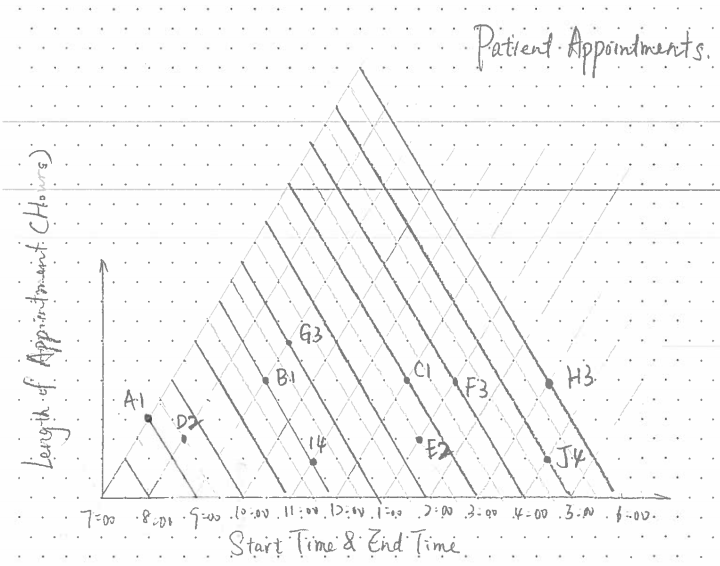 Patient Appointments.
Length of Appointment (Hours)
G3
H3
C1
F3
B1
A1
D2
E2
J4
14
7:00 8:00 9:00 10:00 11:00 12:00 1:00 2:00 3:00 4:00 5:00 6:00
Start Time & End Time